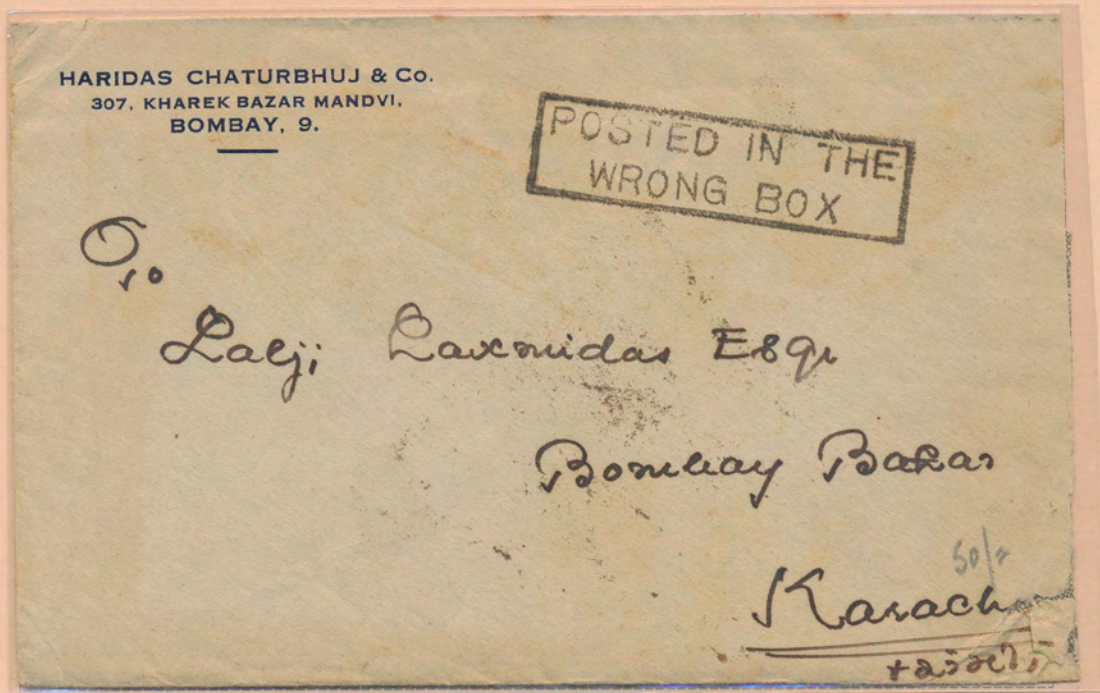 HARIDAS CHATURBHUJ & Co.
307, KHAREK BAZAR MANDVI,
BOMBAY, 9.
POSTED IN THE
WRONG BOX
To
Lalji Laxmidas Esqr
Bombay Bazar
50/-
Karachi